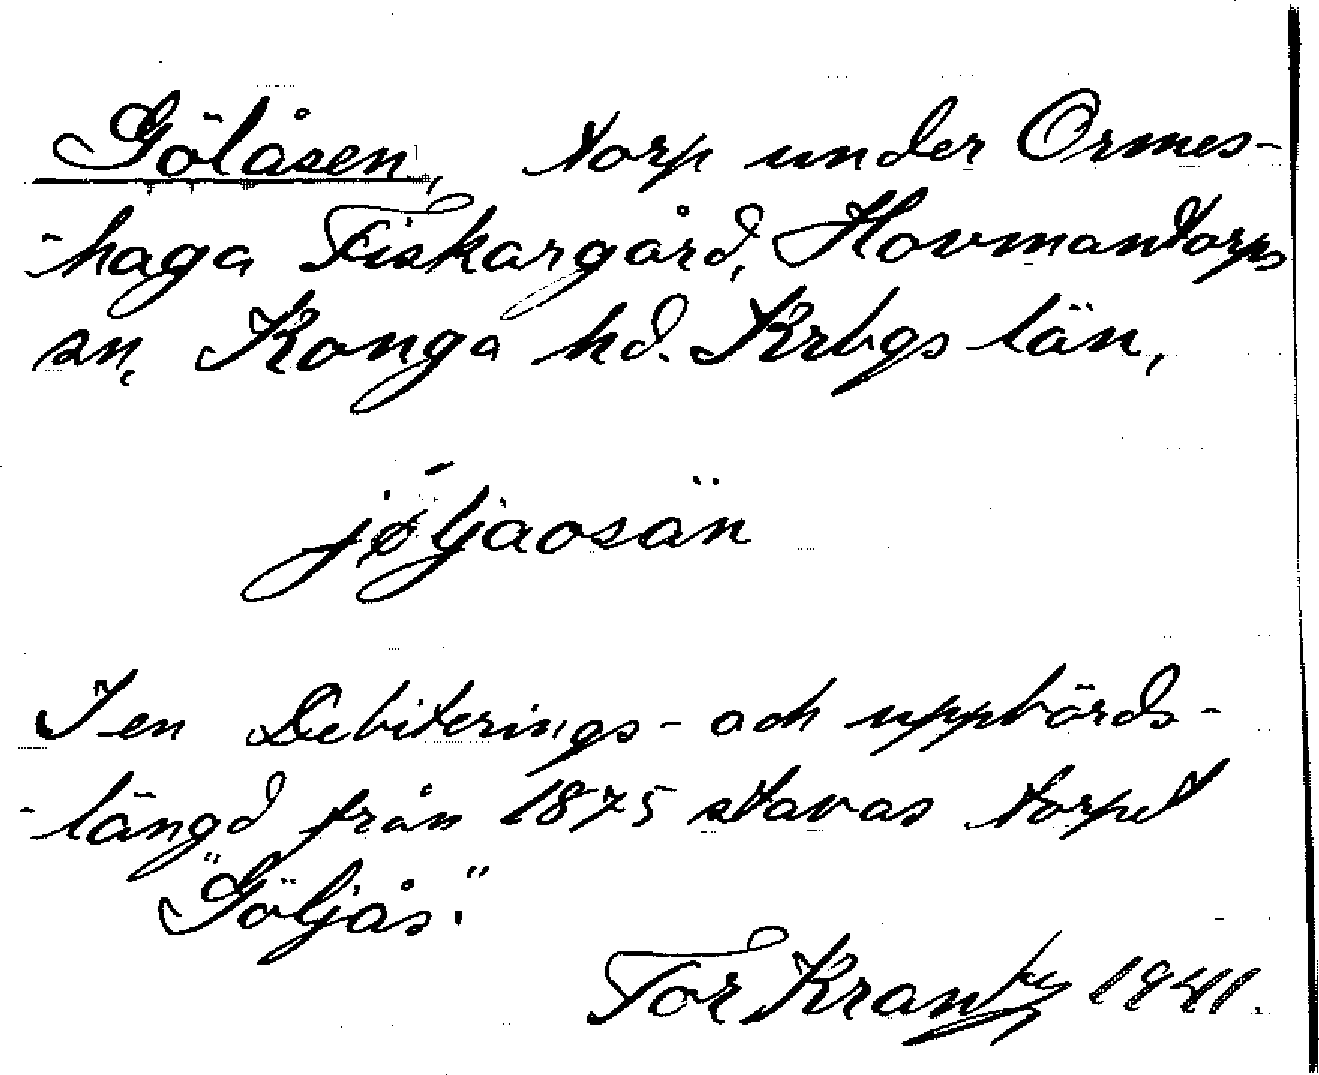 Gölåsen, torp under Ormes-
-haga Fiskargård, Hovmantorps
sn, Konga hd. Krbgs län,
jøljaosän
I en Debiterings- och uppbörds-
-längd från 1875 stavas torpet
"Göljås".
Tor Krantz 1941.